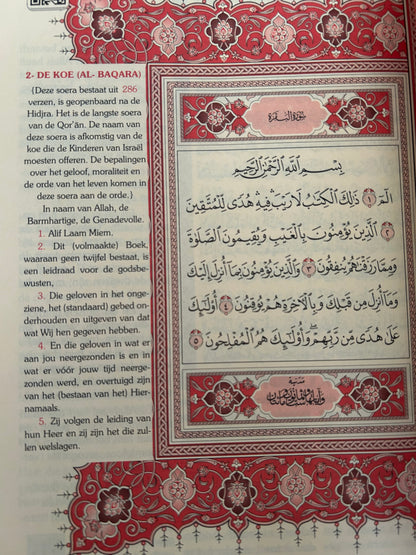 2- DE KOE (AL- BAQARA)
{Deze soera bestaat uit 286
verzen, is geopenbaard na de
Hidjra. Het is de langste soera
van de Qor'ān. De naam van
deze soera is afkomstig van de
koe die de Kinderen van Israël
moesten offeren. De bepalingen
over het geloof, moraliteit en
de orde van het leven komen in
deze soera aan de orde.}
In naam van Allah, de
Barmhartige, de Genadevolle.
1. Alif Laam Miem.
2. Dit (volmaakte) Boek,
waaraan geen twijfel bestaat, is
een leidraad voor de godsbe-
wusten,
3. Die geloven in het onge-
ziene, het (standaard) gebed on-
derhouden en uitgeven van dat
wat Wij hen gegeven hebben.
4. En die geloven in wat er
aan jou neergezonden is en in
wat er vóór jouw tijd neerge-
zonden werd, en overtuigd zijn
van het (bestaan van het) Hier-
namaals.
5. Zij volgen de leiding van
hun Heer en zij zijn het die zul-
len welslagen.
سُورَةُ الْبَقَرَةِ
بِسْمِ اللَّهِ الرَّحْمَٰنِ الرَّحِيمِ
الٓمٓ ﴿١﴾ ذَٰلِكَ الْكِتَابُ لَا رَيْبَ فِيهِ هُدًى لِلْمُتَّقِينَ
﴿٢﴾ الَّذِينَ يُؤْمِنُونَ بِالْغَيْبِ وَيُقِيمُونَ الصَّلَاةَ
وَمِمَّا رَزَقْنَاهُمْ يُنْفِقُونَ ﴿٣﴾ وَالَّذِينَ يُؤْمِنُونَ بِمَا أُنْزِلَ إِلَيْكَ
وَمَا أُنْزِلَ مِنْ قَبْلِكَ وَبِالْآخِرَةِ هُمْ يُوقِنُونَ ﴿٤﴾ أُولَٰئِكَ
عَلَىٰ هُدًى مِنْ رَبِّهِمْ وَأُولَٰئِكَ هُمُ الْمُفْلِحُونَ ﴿٥﴾
مدنية